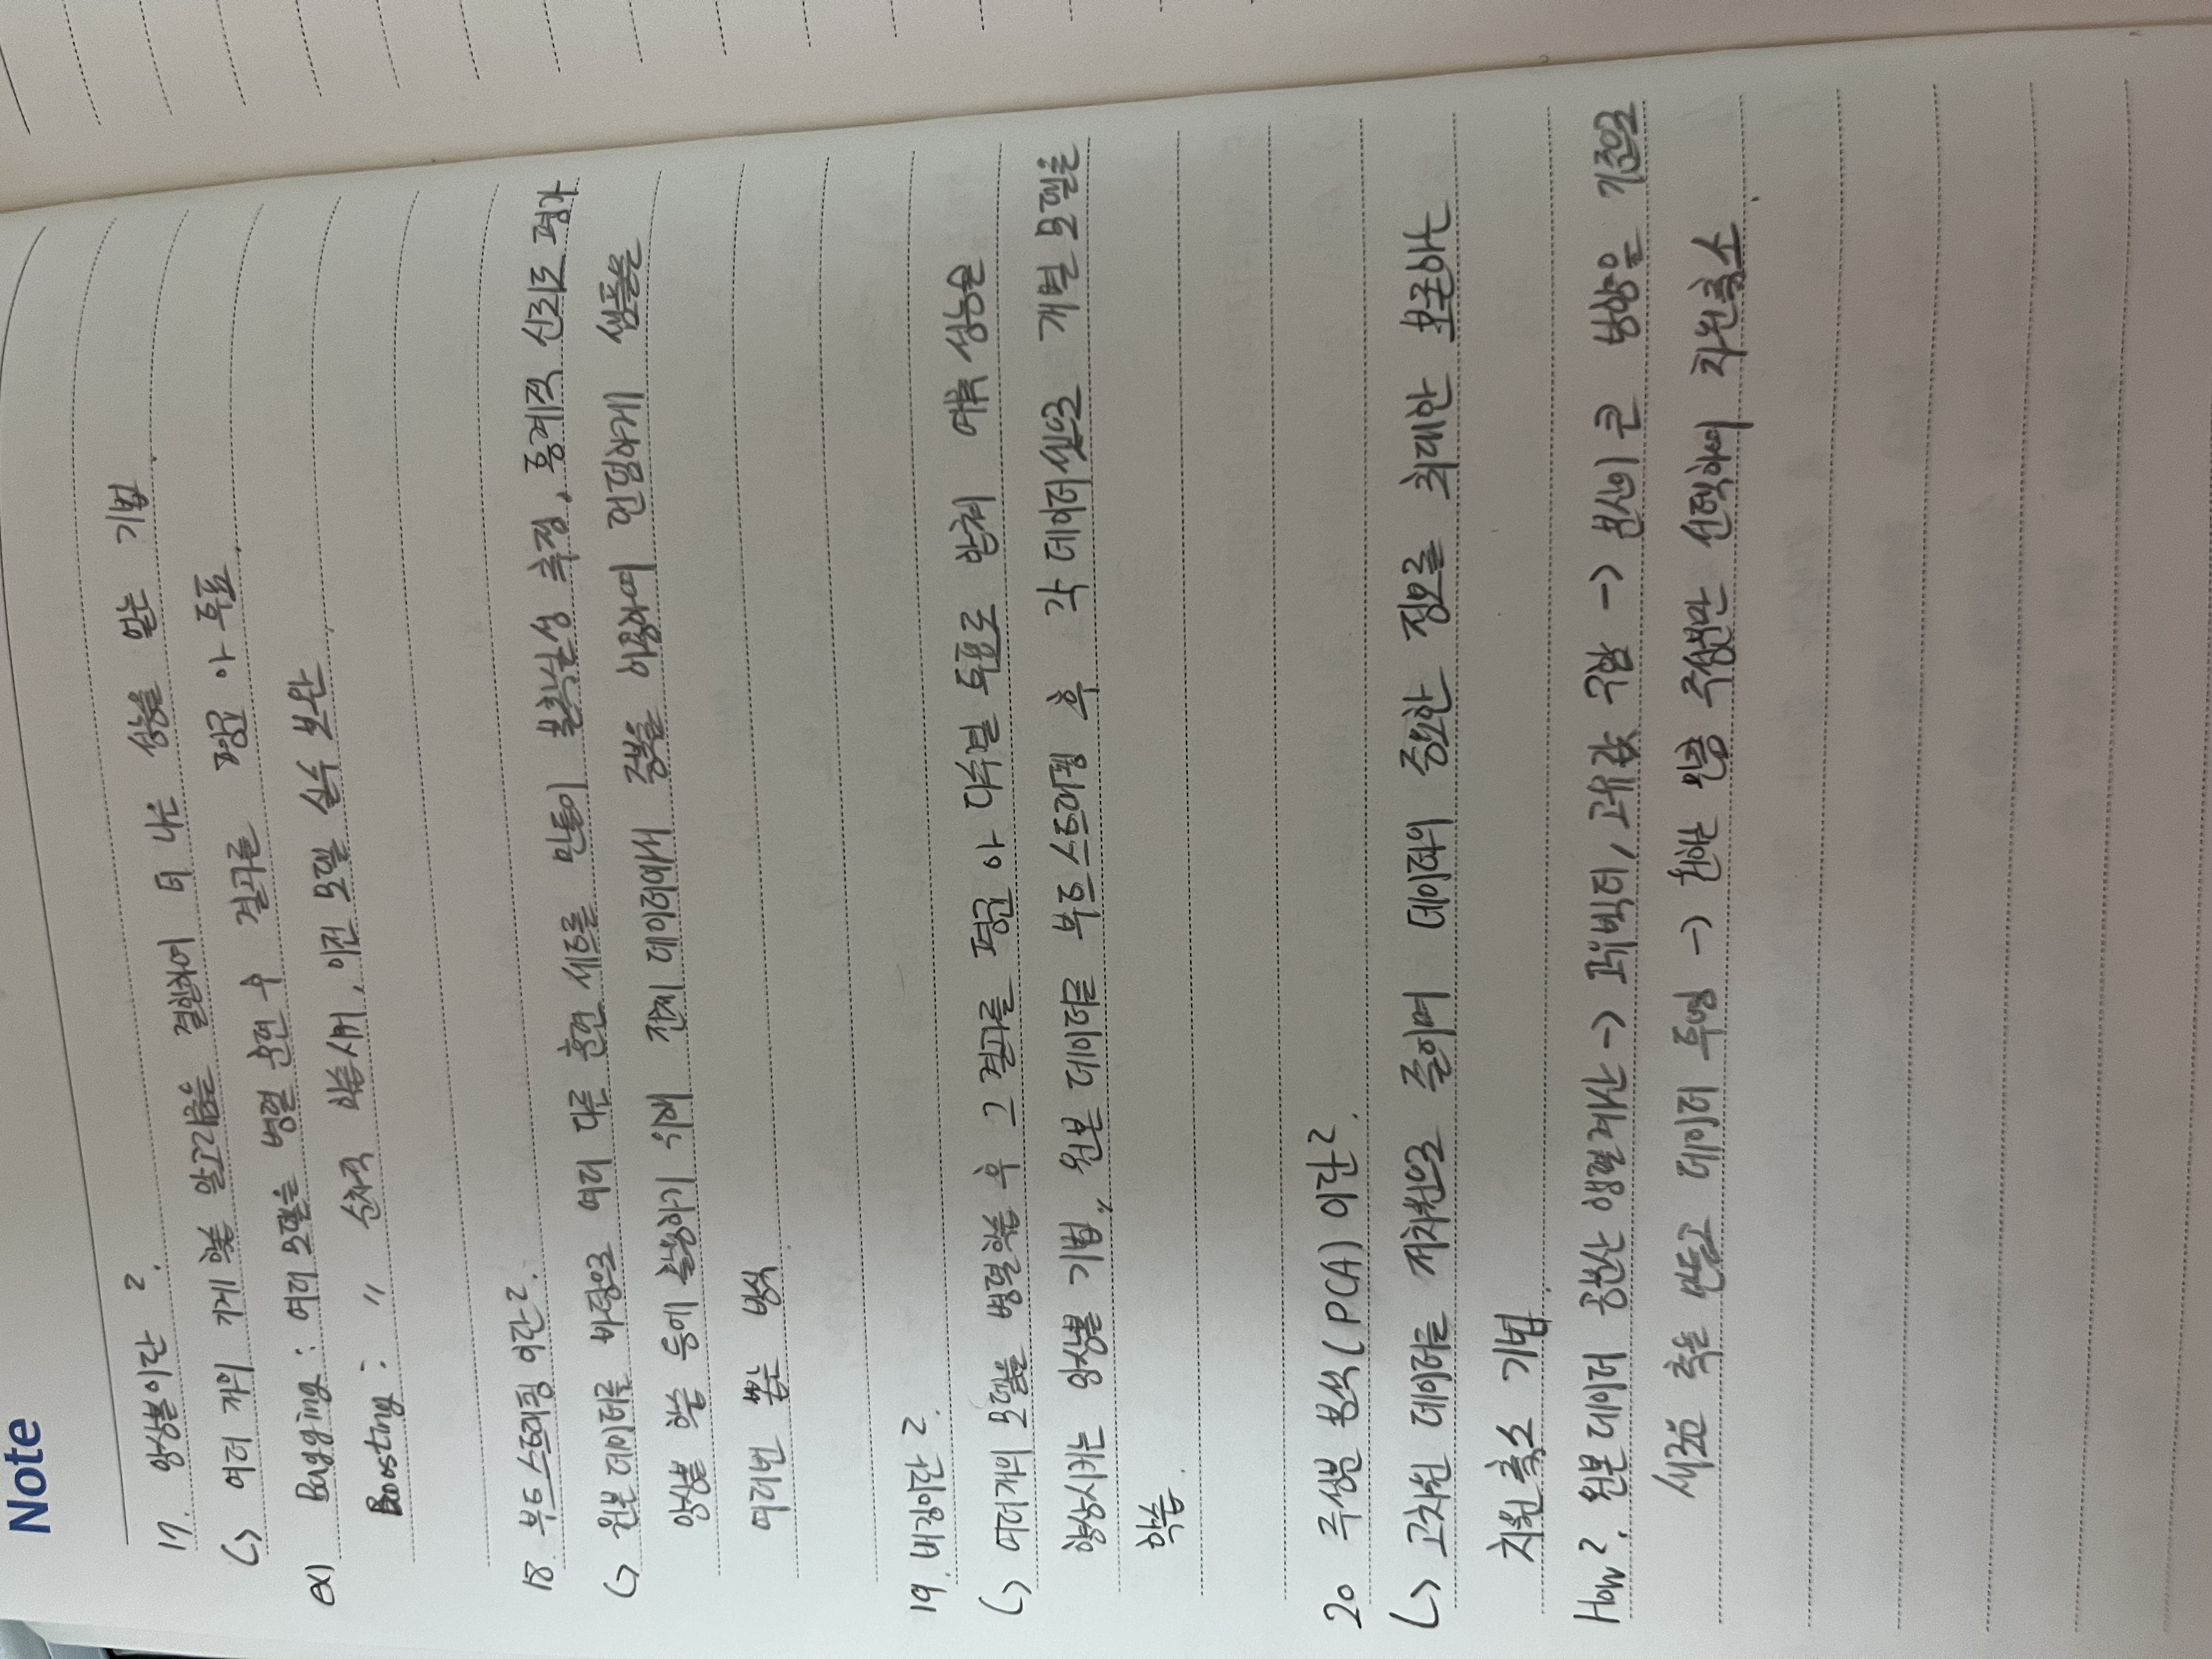 Note
17. 앙상블이란?
↳ 여러 개의 기계 학습 알고리즘을 결합하여 더 나은 성능을 얻는 기법.
ex) Bagging : 여러 모델을 병렬 훈련 후 결과를 평균 or 투표.
Boosting : 〃 순차적 학습시켜, 이전 모델 실수 보완.
18. 부트스트래핑 이란?
↳ 원본 데이터를 바탕으로 여러 다른 훈련 세트를 만들어 불확실성 추정, 통계적 신뢰도 평가
앙상블 학습 등에 활용하기 위해 전체 데이터에서 중복을 허용하며 랜덤하게 샘플을
여러번 뽑는 방식.
19. 배깅이란?
↳ 여러개의 모델을 병렬학습 후 그 결과를 평균 or 다수결 투표로 합쳐 예측 성능을
향상시키는 앙상블 기법, 원본 데이터를 부트스트래핑 후 각 데이터셋으로 개별 모델을
학습.
20 주성분 분석(PCA) 이란?
↳ 고차원 데이터를 저차원으로 줄이며 데이터의 중요한 정보를 최대한 보존하는
차원축소 기법.
How?. 원본데이터 공분산 행렬계산 → 고유벡터, 고유값 구함 → 분산이 큰 방향을 기준으로
새로운 축을 만들고 데이터 투영 → 원하는 만큼 주성분만 선택하여 차원축소.